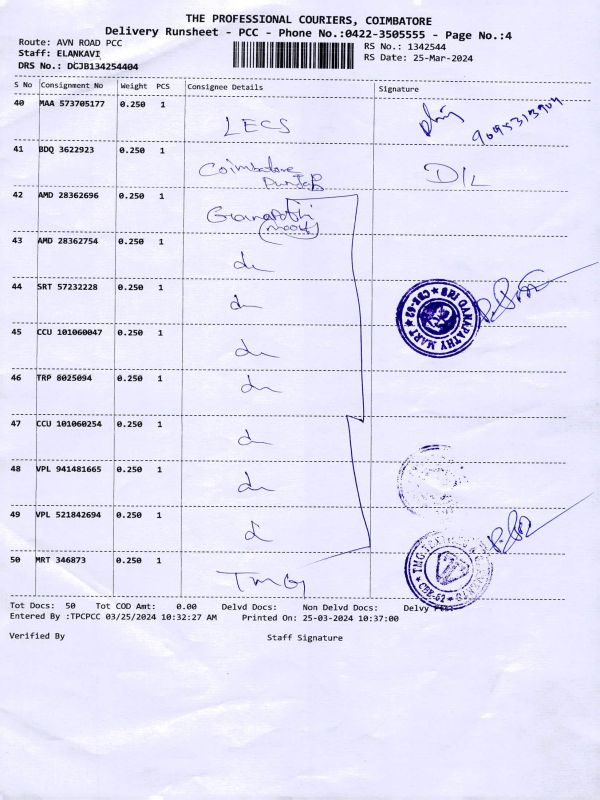 THE PROFESSIONAL COURIERS, COIMBATORE
Delivery Runsheet - PCC - Phone No.:0422-3505555 - Page No.:4
Route: AVN ROAD PCC
RS No.: 1342544
Staff: ELANKAVI
RS Date: 25-Mar-2024
DRS No.: DGJB134254404
S No Consignment No Weight PCS Consignee Details Signature
40 MAA 573705177 0.250 1 LECS
41 BDQ 3622923 0.250 1 Coimbatore DIL
42 AMD 28362696 0.250 1
43 AMD 28362754 0.250 1
44 SRT 57232228 0.250 1
SRI GANAPATHY MART CBE-62
45 CCU 101060047 0.250 1
46 TRP 8025094 0.250 1
47 CCU 101060254 0.250 1
48 VPL 941481665 0.250 1
49 VPL 521842694 0.250 1
50 MRT 346873 0.250 1 TMG
Tot Docs: 50 Tot COD Amt: 0.00 Delvd Docs: Non Delvd Docs: Delvy
Entered By :TPCPCC 03/25/2024 10:32:27 AM Printed On: 25-03-2024 10:37:00
Verified By Staff Signature